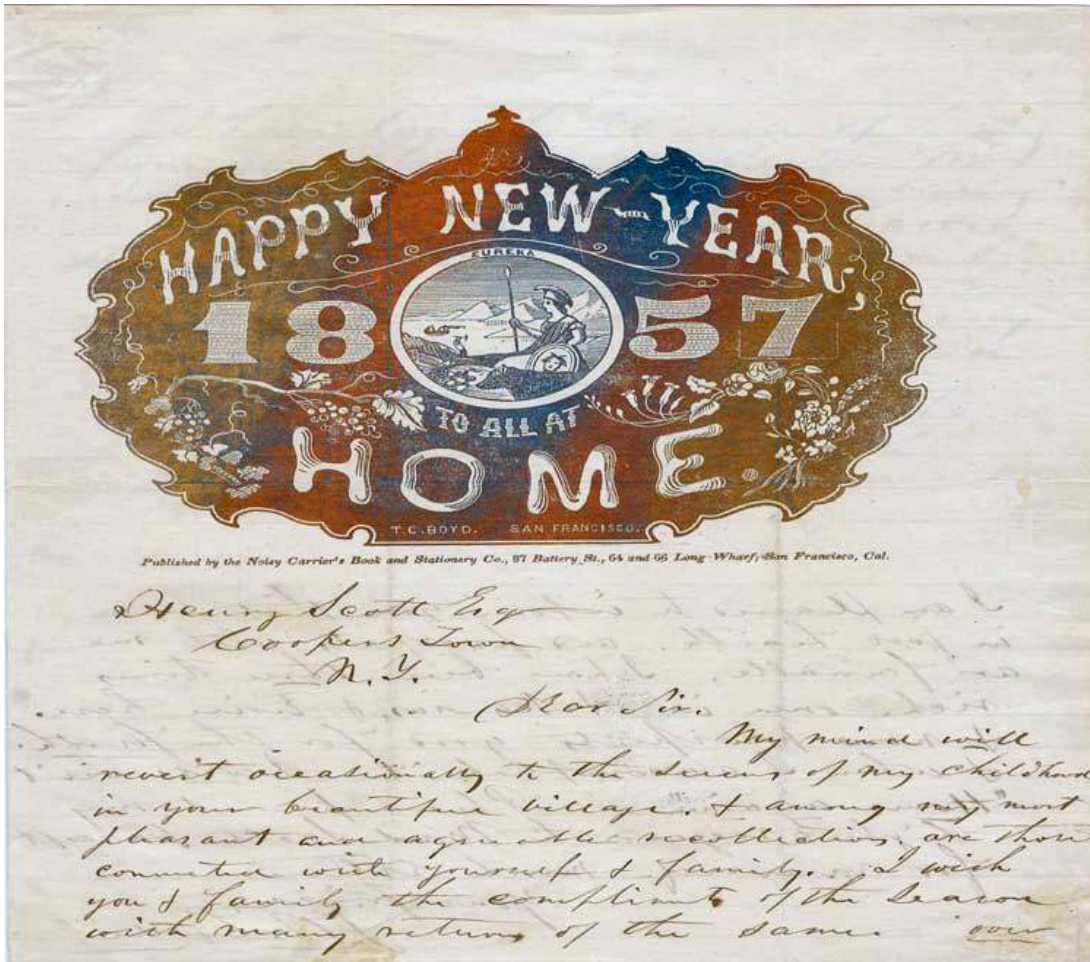 HAPPY NEW-YEAR,
1857
EUREKA
TO ALL AT
HOME.
T.C. BOYD. SAN FRANCISCO.
Published by the Noisy Carrier's Book and Stationery Co., 87 Battery St., 64 and 66 Long-Wharf, San Francisco, Cal.
Henry Scott Esq
Coopers Town
N.Y.
Dear Sir.
My mind will
revert occasionally to the scenes of my childhood
in your beautiful village. & among my most
pleasant and agreeable recollections, are those
connected with yourself & family. I wish
you & family the compliments of the Season
with many returns of the same. over